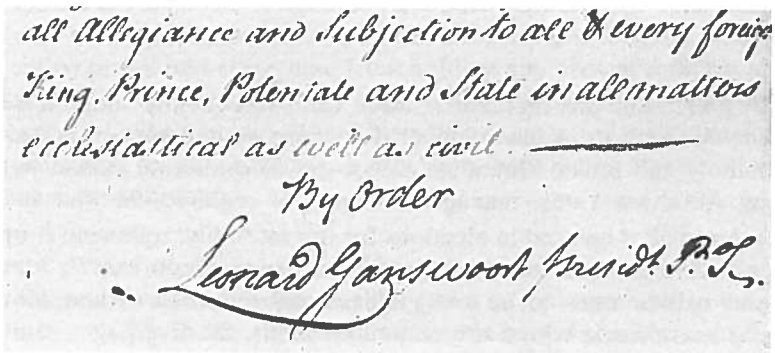 all Allegiance and Subjection to all & every foreign
King, Prince, Potentate and State in all matters
ecclesiastical as well as civil
By Order
Leonard Gansevoort, Presidt. P. T.